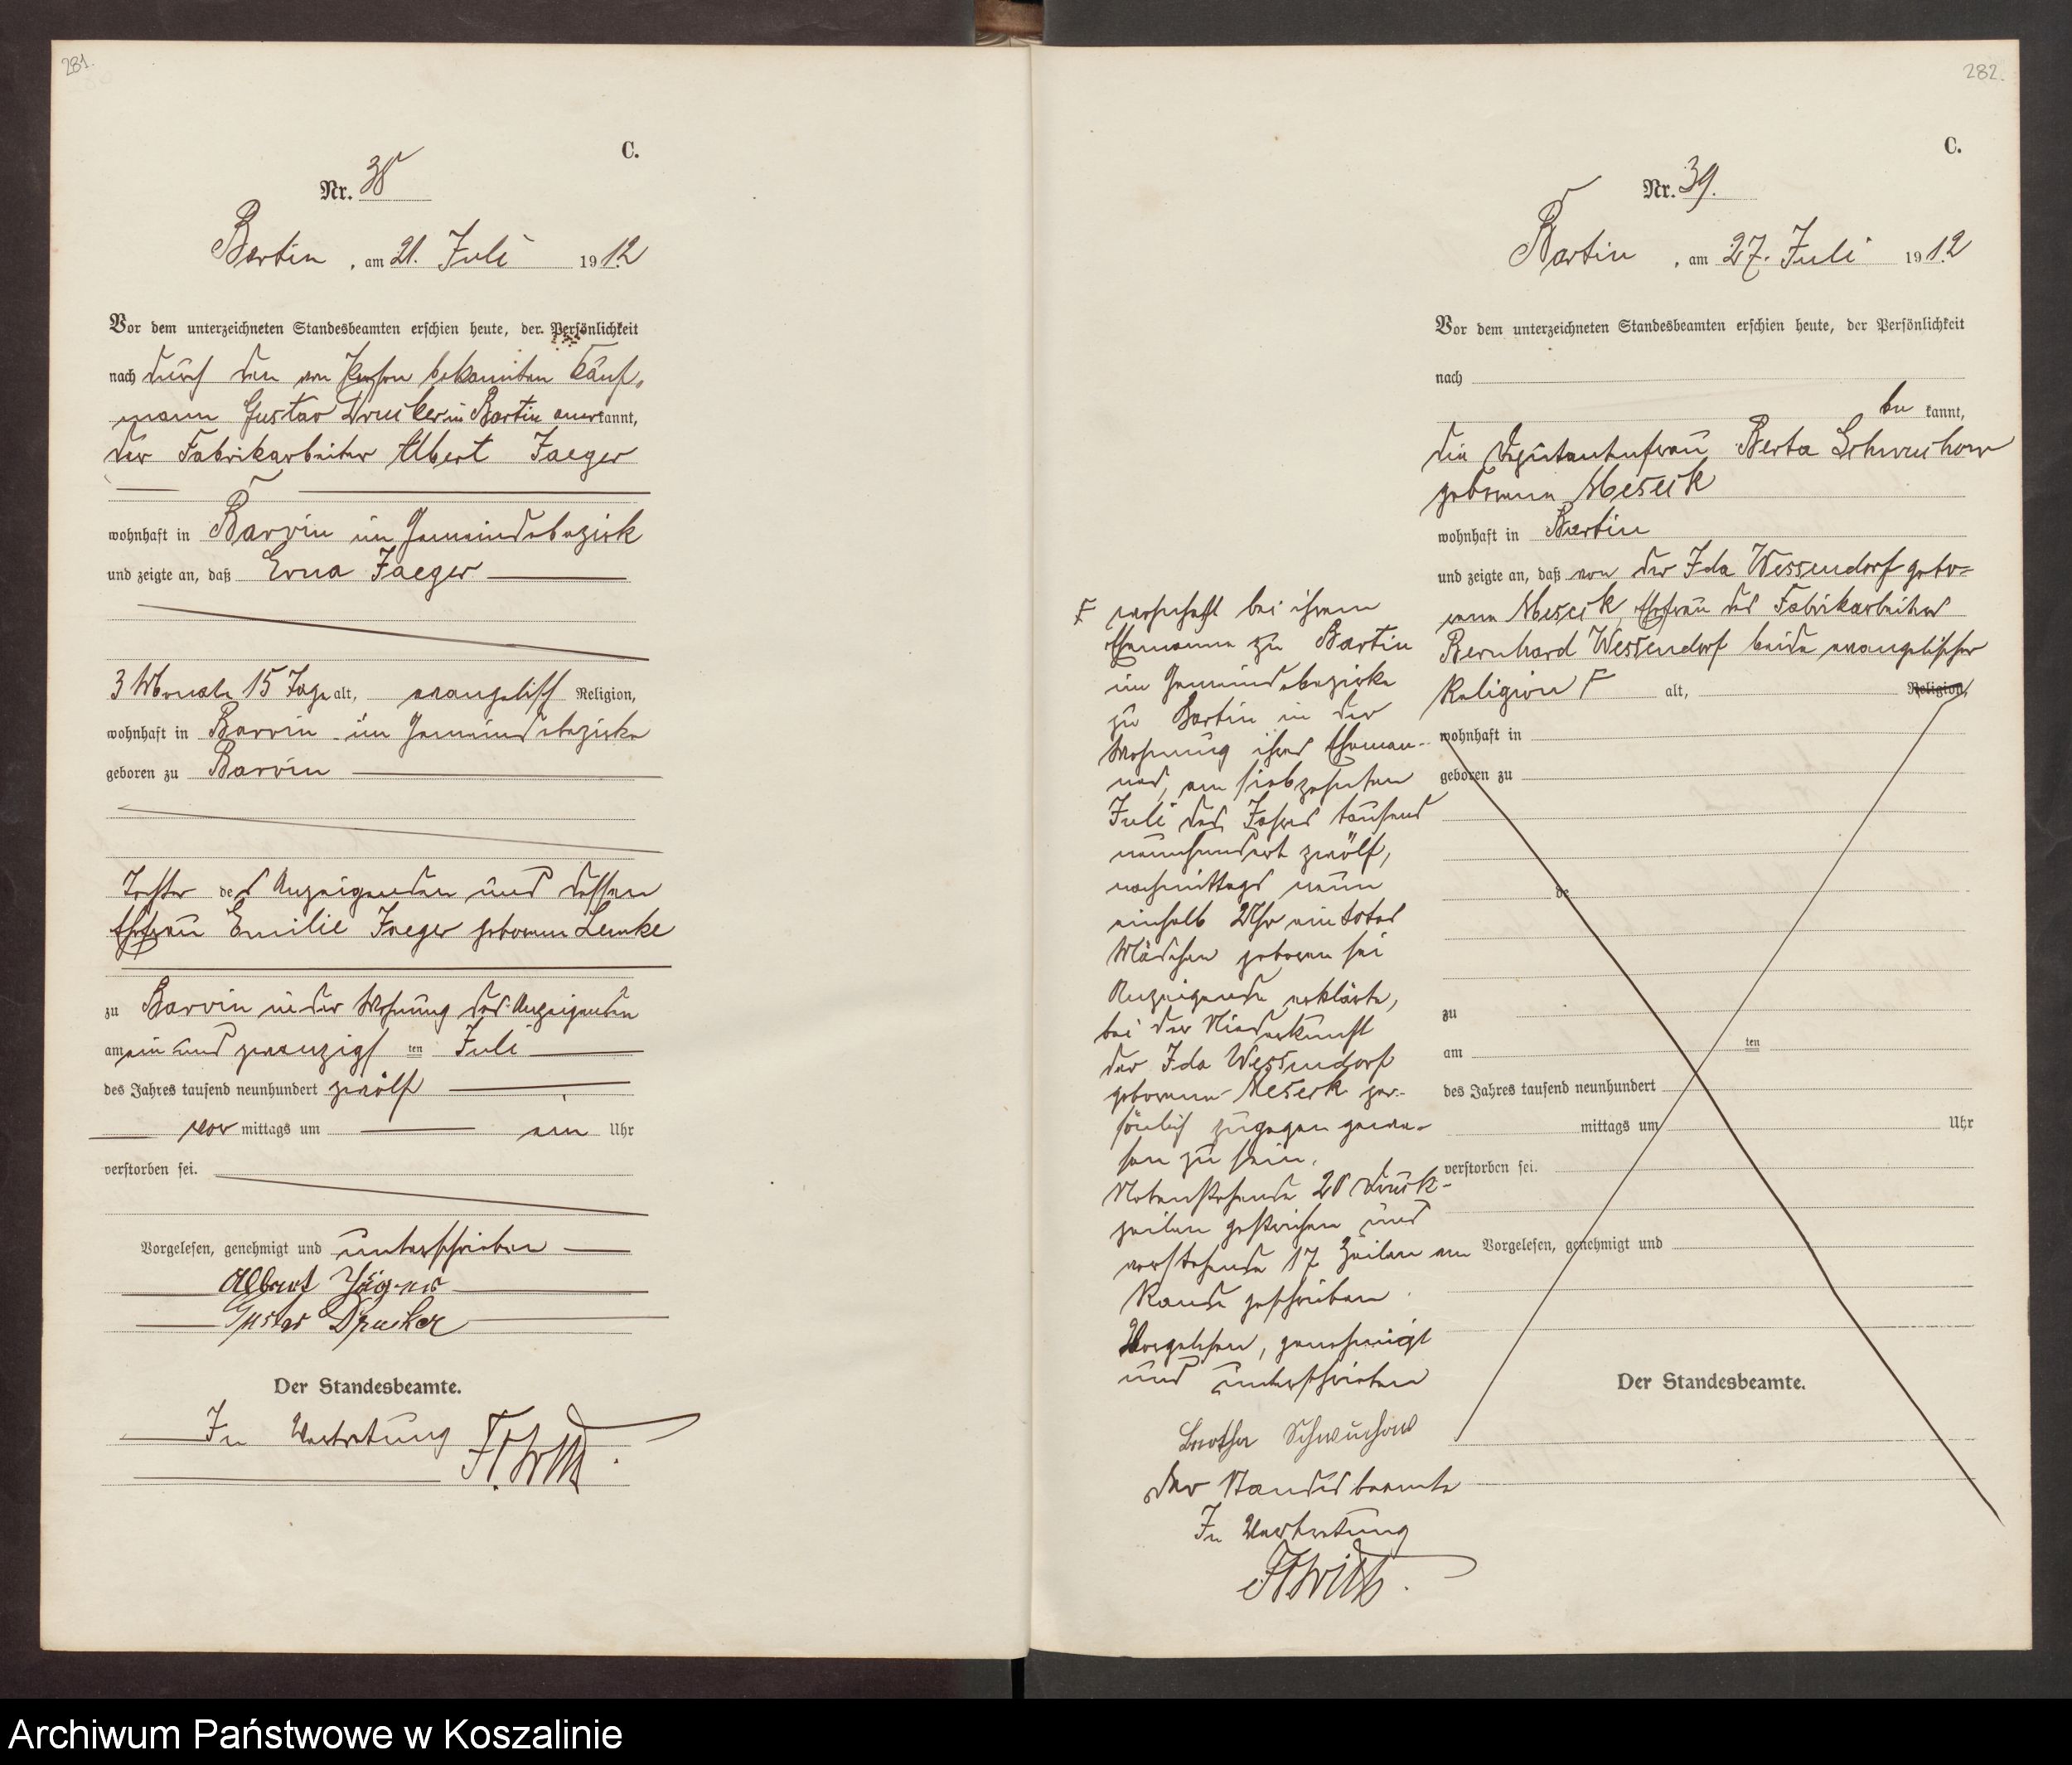 281.
C.
Nr. 38
Bartin, am 21. Juli 1912
Vor dem unterzeichneten Standesbeamten erschien heute, der Persönlichkeit
nach durch den von Person bekannten Kauf-
mann Gustav Drucker in Bartin anerkannt,
der Fabrikarbeiter Albert Jaeger
wohnhaft in Barvin im Gemeindebezirk
und zeigte an, daß Erna Jaeger
3 Monate 15 Tage alt, evangelisch Religion,
wohnhaft in Barvin im Gemeindebezirke
geboren zu Barvin
Tochter des Anzeigenden und dessen
Ehefrau Emilie Jaeger geborenen Lemke
zu Barvin in der Wohnung des Anzeigenden
am ein und zwanzigsten Juli
des Jahres tausend neunhundert zwölf
vor mittags um ein Uhr
verstorben sei.
Vorgelesen, genehmigt und unterschrieben
Albert Jäger
Gustav Drucker
Der Standesbeamte.
In Vertretung
282.
C.
Nr. 39.
Bartin, am 27. Juli 1912
Vor dem unterzeichneten Standesbeamten erschien heute, der Persönlichkeit
nach
be kannt,
die Deputantenfrau Berta Schwuchow
geborene Meseck
wohnhaft in Bartin
und zeigte an, daß von der Ida Wessendorf gebo-
rene Meseck, Ehefrau des Fabrikarbeiters
Bernhard Wessendorf beide evangelischer
Religion F alt, Religion,
wohnhaft in
geboren zu
de
zu
am ten
des Jahres tausend neunhundert
mittags um Uhr
verstorben sei.
Vorgelesen, genehmigt und
Der Standesbeamte.
F wohnhaft bei ihrem
Ehemanne zu Bartin
im Gemeindebezirke
zu Bartin in der
Wohnung ihres Eheman-
nes, am siebzehnten
Juli des Jahres tausend
neunhundert zwölf,
nachmittags neun
einhalb Uhr ein totes
Mädchen geboren sei
Anzeigende erklärte,
bei der Niederkunft
der Ida Wessendorf
geborene Meseck per-
sönlich zugegen gewe-
sen zu sein.
Nebenstehende 20 Druck-
zeilen gestrichen und
vorstehende 17 Zeilen am
Rande geschrieben
Vorgelesen, genehmigt
und unterschrieben
Schwuchow
Der Standesbeamte
In Vertretung
Archiwum Państwowe w Koszalinie